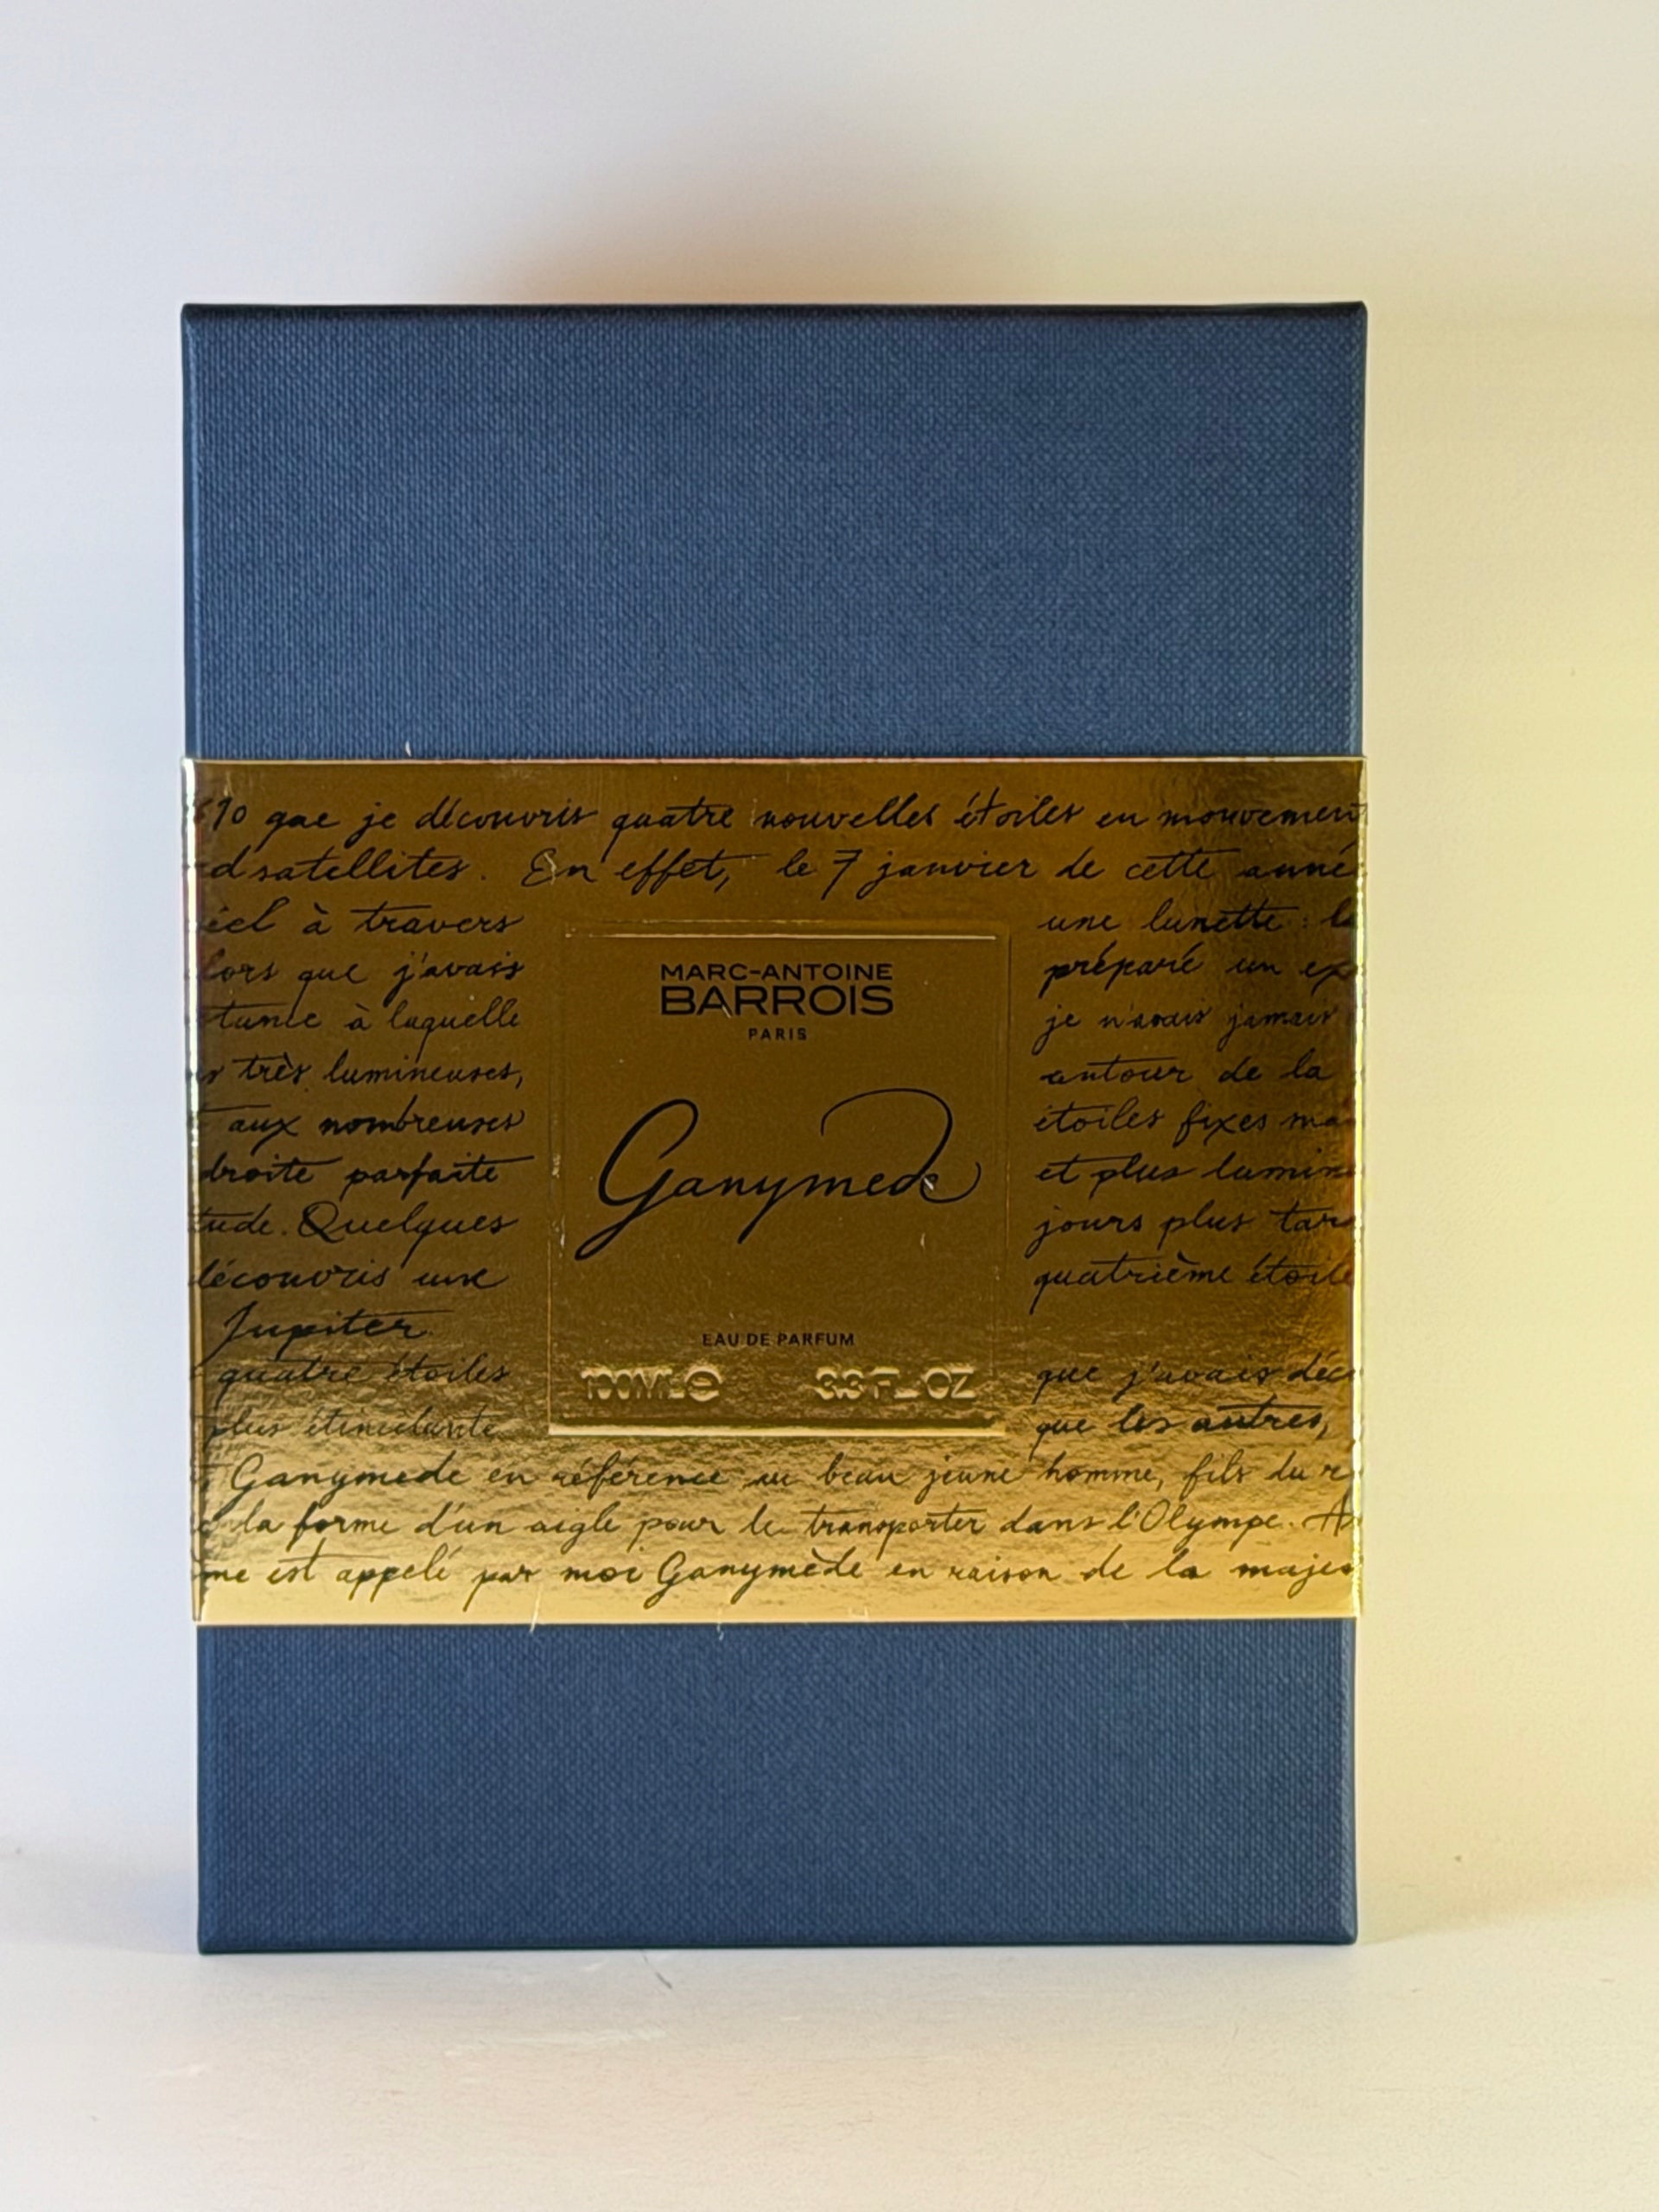 610 que je découvris quatre nouvelles étoiles en mouvement
satellites. En effet, le 7 janvier de cette anné
iel à travers une lunette : l
lors que j'avais préparé un ex
tume à laquelle je n'avais jamais
très lumineuses, autour de la
aux nombreuses étoiles fixes ma
droite parfaite et plus lumine
tude. Quelques jours plus tar
découvris une quatrième étoile
Jupiter.
quatre étoiles que j'avais déc
plus étincelante que les autres,
Ganymede en référence au beau jeune homme, fils du r
la forme d'un aigle pour le transporter dans l'Olympe. A
me est appelé par moi Ganymède en raison de la majes
MARC-ANTOINE
BARROIS
PARIS
Ganymede
EAU DE PARFUM
100ML℮ 3.3 FL OZ